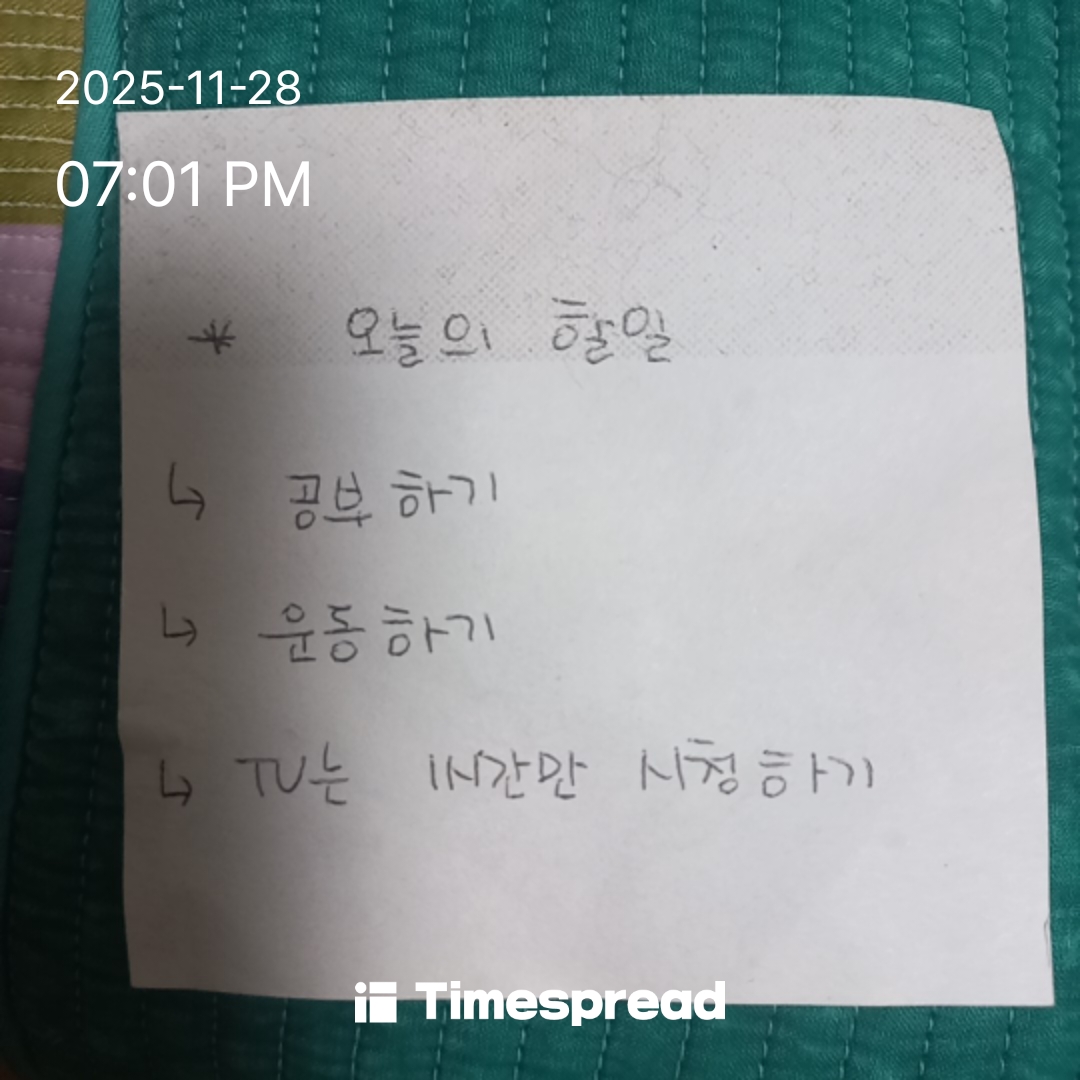 2025-11-28
07:01 PM
* 오늘의 할일
↳ 공부하기
↳ 운동하기
↳ TV는 1시간만 시청하기
Timespread